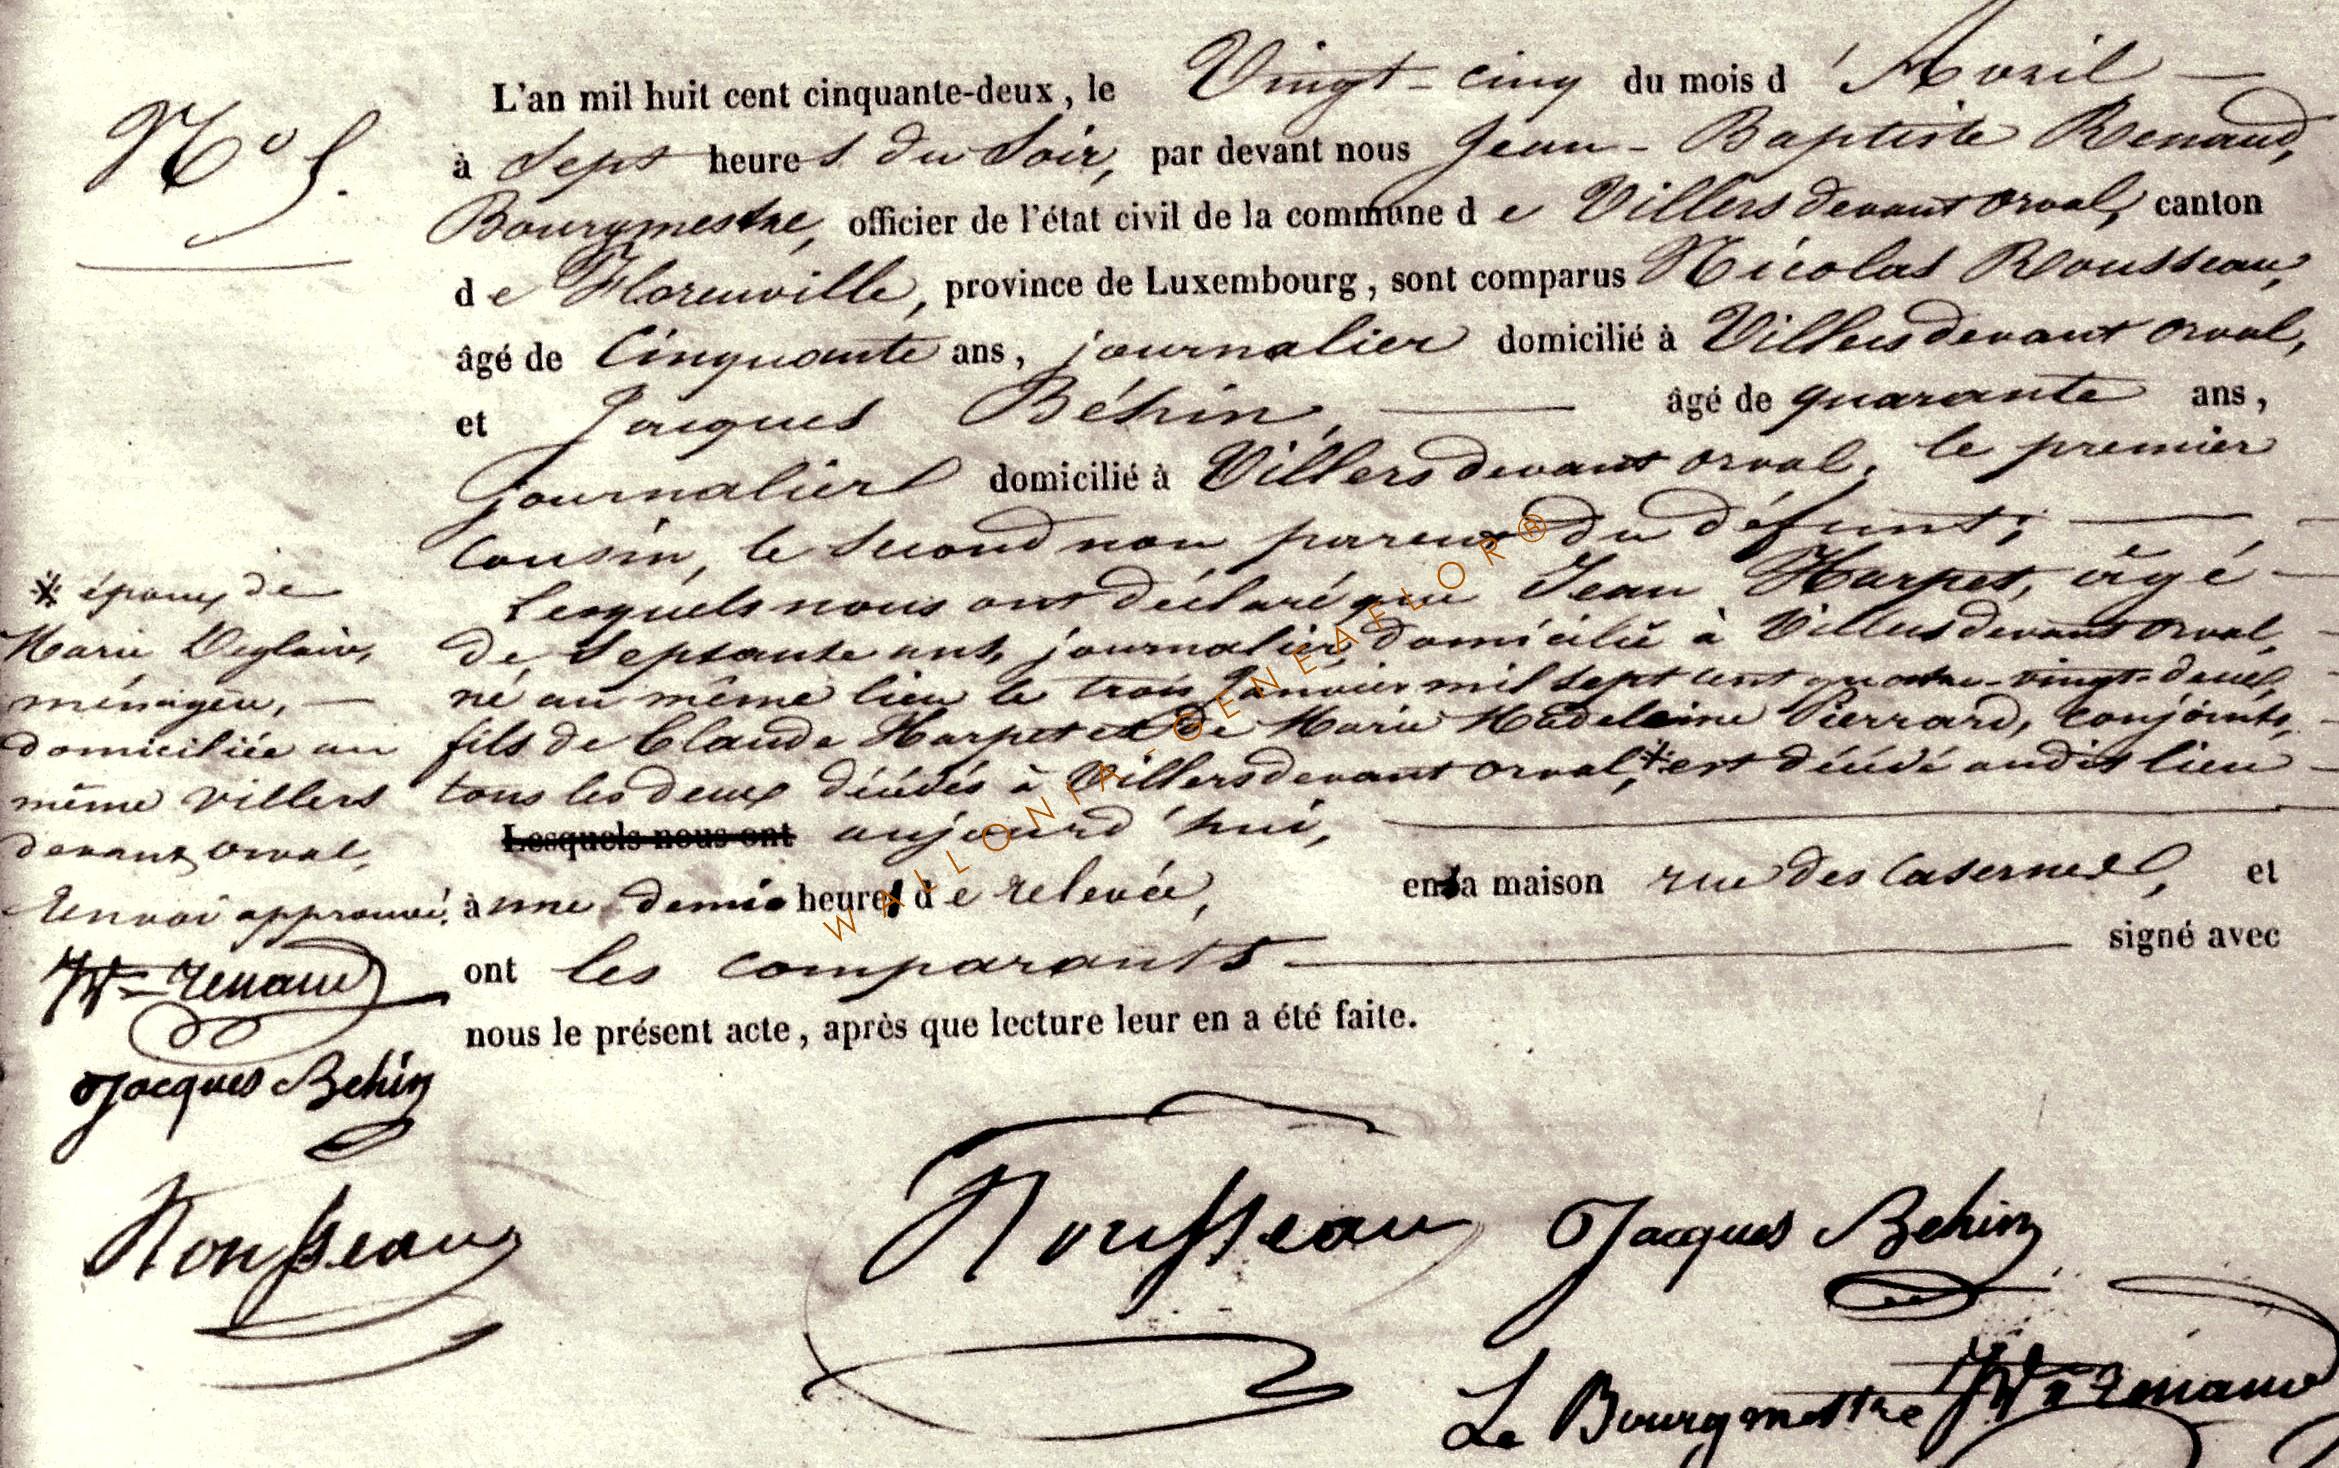 N° 5.
L'an mil huit cent cinquante-deux, le Vingt-cinq du mois d'Avril
à Sept heures du Soir, par devant nous Jean-Baptiste Renaud,
Bourgmestre, officier de l'état civil de la commune de Villers devant Orval, canton
de Florenville, province de Luxembourg, sont comparus Nicolas Rousseau,
âgé de Cinquante ans, journalier domicilié à Villers devant Orval,
et Jacques Béhin, âgé de quarante ans,
journalier domicilié à Villers devant Orval, le premier
Cousin, le Second non parent du défunt;
Lesquels nous ont déclaré que Jean Harpet, âgé
de Septante ans, journalier, domicilié à Villers devant Orval,
né au même lieu le trois Janvier mil sept cent quatre-vingt-deux,
fils de Claude Harpet et de Marie Madeleine Pierrard, conjoints,
tous les deux décédés à Villers devant Orval,* est décédé audit lieu
Lesquels nous ont aujourd'hui,
à une demie heure de relevée, en sa maison rue des Casernes, et
ont les comparants signé avec
nous le présent acte, après que lecture leur en a été faite.
* époux de
Marie Deglain,
ménagère,
domiciliée au
même Villers
devant Orval,
Renvoi approuvé.
Renaud
Jacques Behin
Rousseau
Rousseau Jacques Behin
Le Bourgmestre Renaud
WALLONIA-GENEAFLOR®